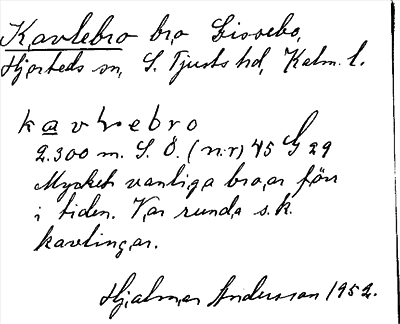 Kavlebro bro Gissebo,
Hjorteds sn, S. Tjusts hd, Kalm. l.
kavlebro
2.300 m. S. Ö. (nr) 45 G 29
Mycket vanliga broar förr
i tiden. Var runda s.k.
kavlingar.
Hjalmar Andersson 1952.